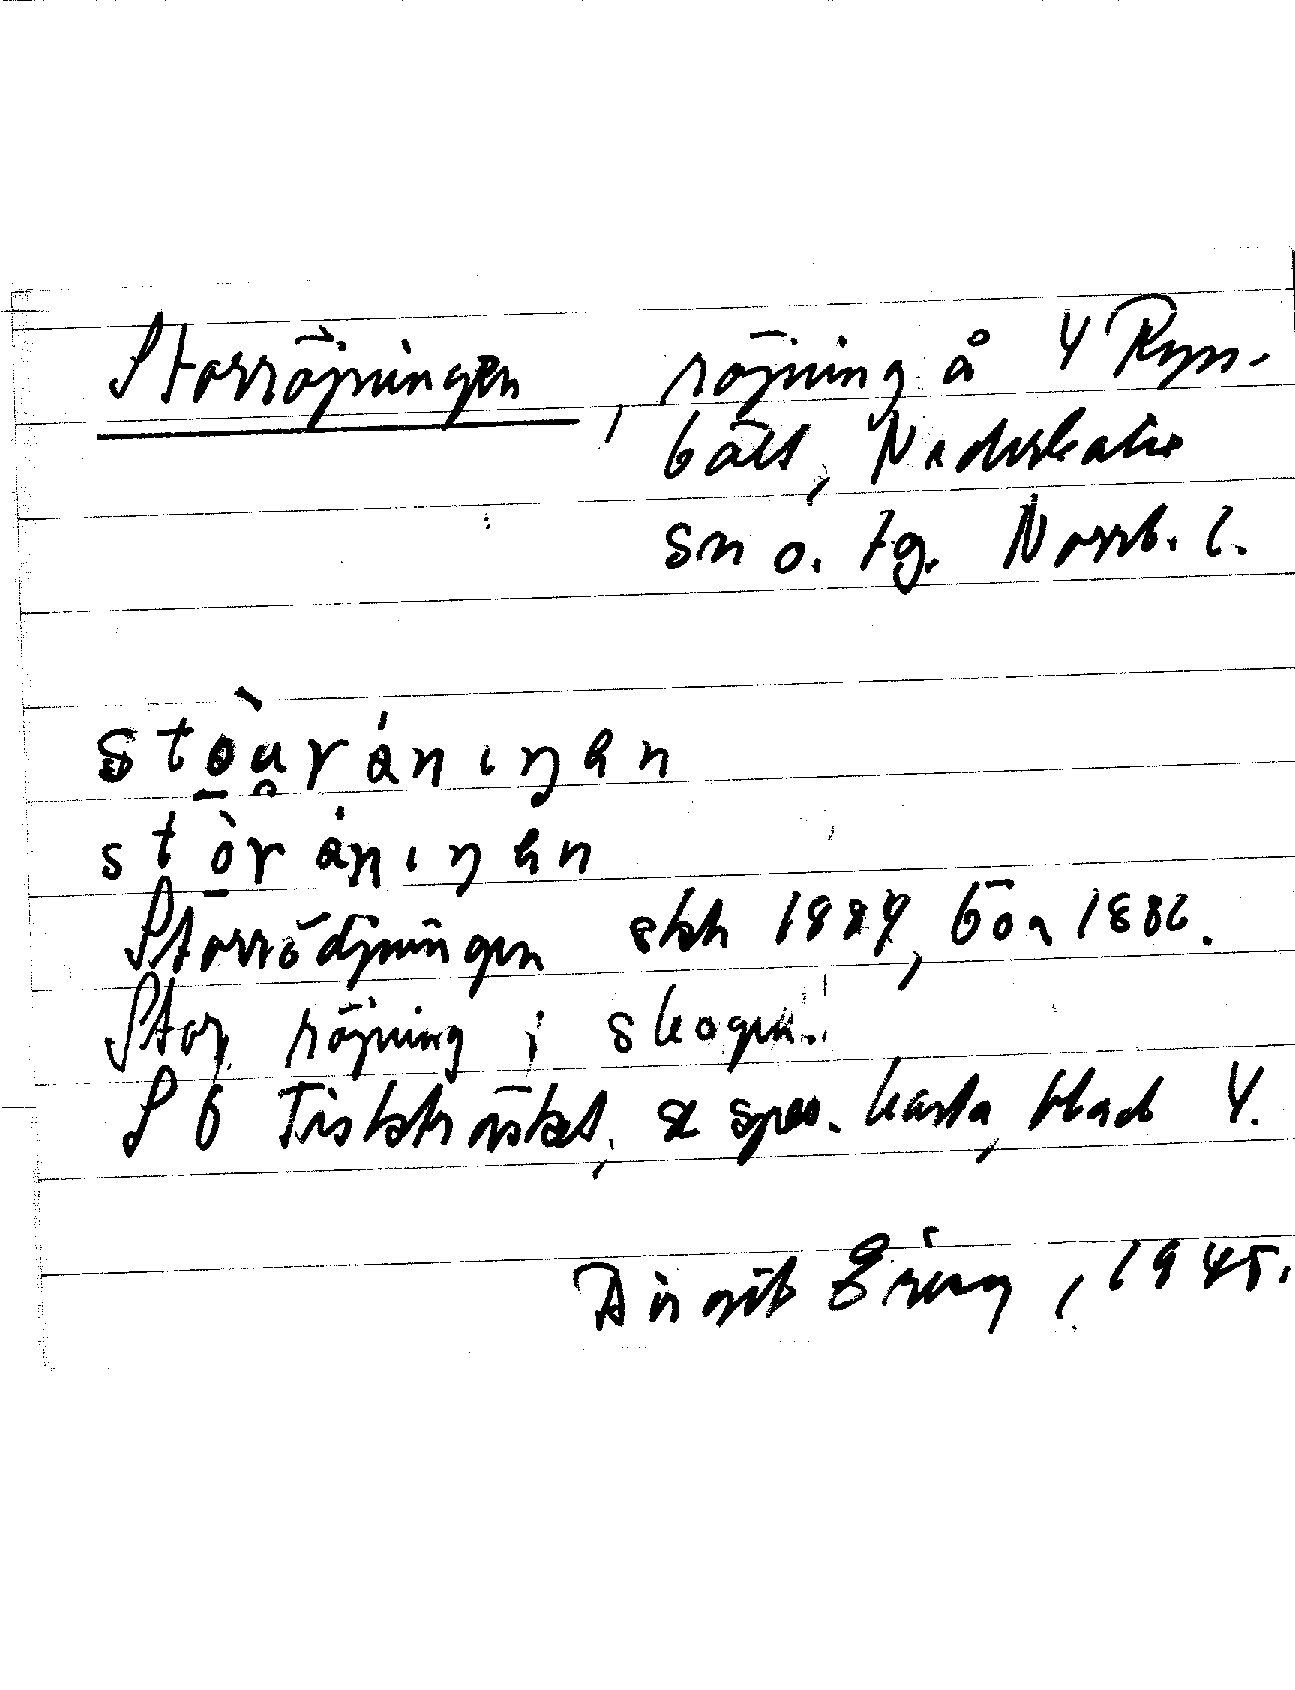 Storröjningen, röjning å 4 Ryn-
bält, Nederkalix
sn o. tg. Norrb. l.
stòu̯rániŋen
stòrániŋen
Storrödjningen skh 1887, böa 1886.
Stor röjning i skogen.
S ö Tisktträsket, se spec. karta, blad 4.
Birgit 1945.